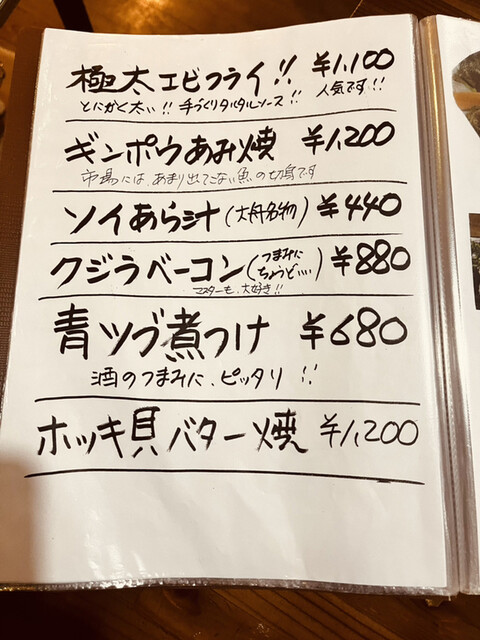 極太エビフライ!! ¥1,100
とにかく太い!! 手づくりタルタルソース!! 人気です!!
ギンポウあみ焼 ¥1,200
市場には、あまり出てこない魚の切身です
ソイあら汁(大舟名物) ¥440
クジラベーコン(つまみにちょうど…) ¥880
マスターも、大好き!!
青ツブ煮つけ ¥680
酒のつまみに、ピッタリ!!
ホッキ貝バター焼 ¥1,200